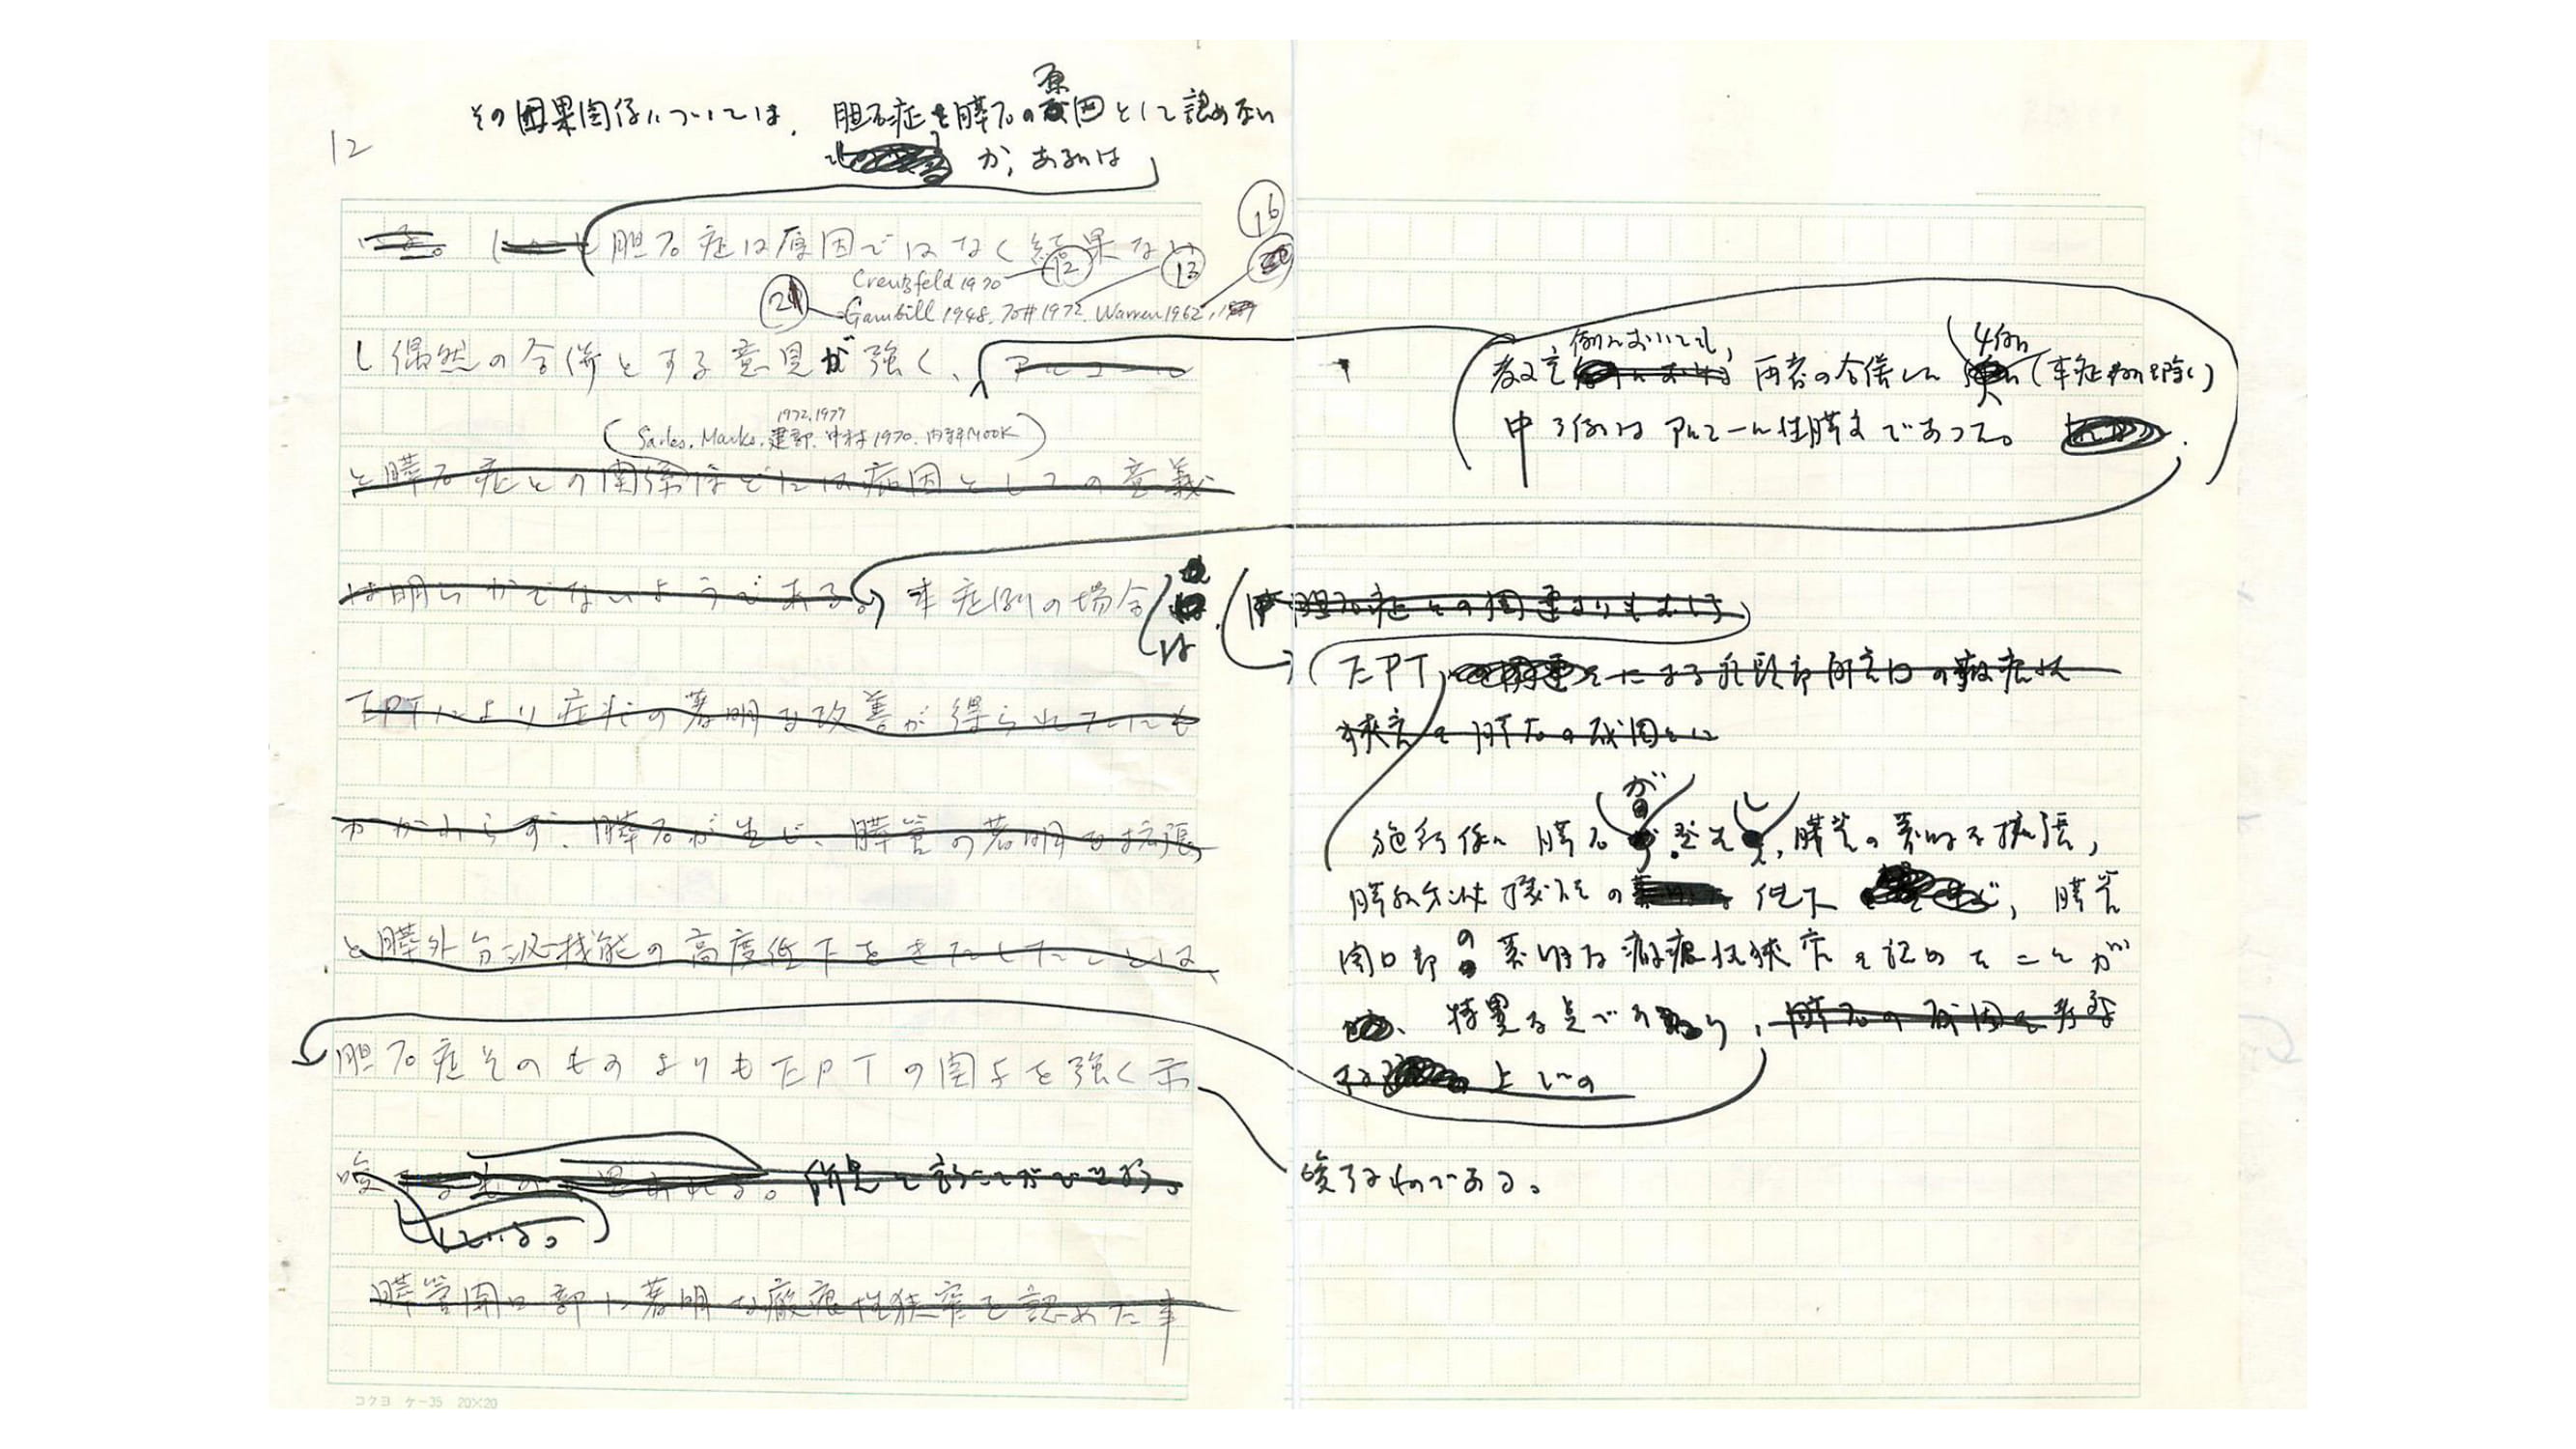 12
その因果関係については、胆石症を膵石の原因として認めない
か、あるいは
16
いる。 胆石症は原因ではなく結果ない
Creutzfeld 1970 12 13
21 Gambill 1948. 石井1972. Warren 1962,
し偶然の合併とする意見が強く、アルコール
1972, 1977
(Sarles. Marks. 建部. 中村1970. 内科MOOK)
と膵石症との関係ほどには病因としての意義
は明らかでないようである。 本症例の場合
は
EPTにより症状の著明な改善が得られていたにも
かかわらず、膵石が生じ、膵管の著明な拡張
と膵外分泌機能の高度低下をきたしたことは
胆石症そのものよりもEPTの関与を強く示
唆 思われる。所見と言うことができよう。
している。
膵管開口部に著明な瘢痕性狭窄を認めた事
コクヨ ケ-35 20×20
例においても、 4例
教室 両者の合併した (本症例を除く)
中3例はアルコール性膵炎であった。
胆石症との関連よりもむしろ
EPT による乳頭部開口部の瘢痕性
狭窄を膵石の成因とに
が し
施行後に膵石 発生 、膵管の著明な拡張、
膵外分泌機能の 低下 など、膵管
開口部の著明な瘢痕性狭窄を認めたことが
特異な点であり、膵石の成因を考察
する 上での
唆するものである。